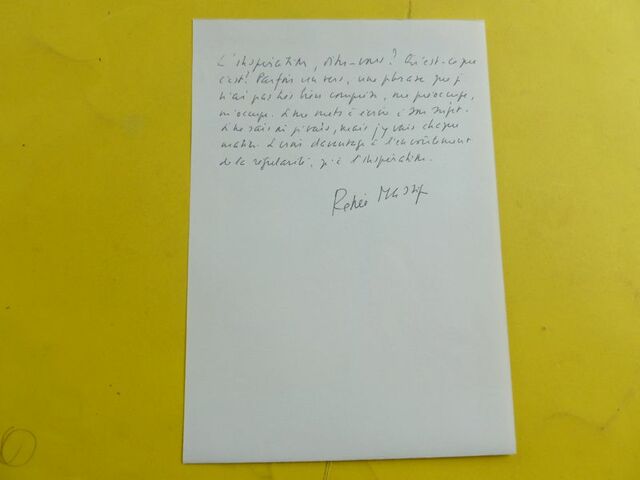 L'inspiration, dites-vous? Qu'est-ce que
c'est? Parfois un vers, une phrase que j
n'ai pas très bien comprise, me préoccupe,
m'occupe. Je me mets à écrire à son sujet.
Je ne sais où je vais, mais j'y vais chaque
matin. Je crois davantage à l'envoûtement
de la régularité, qu'à l'inspiration.
Renée